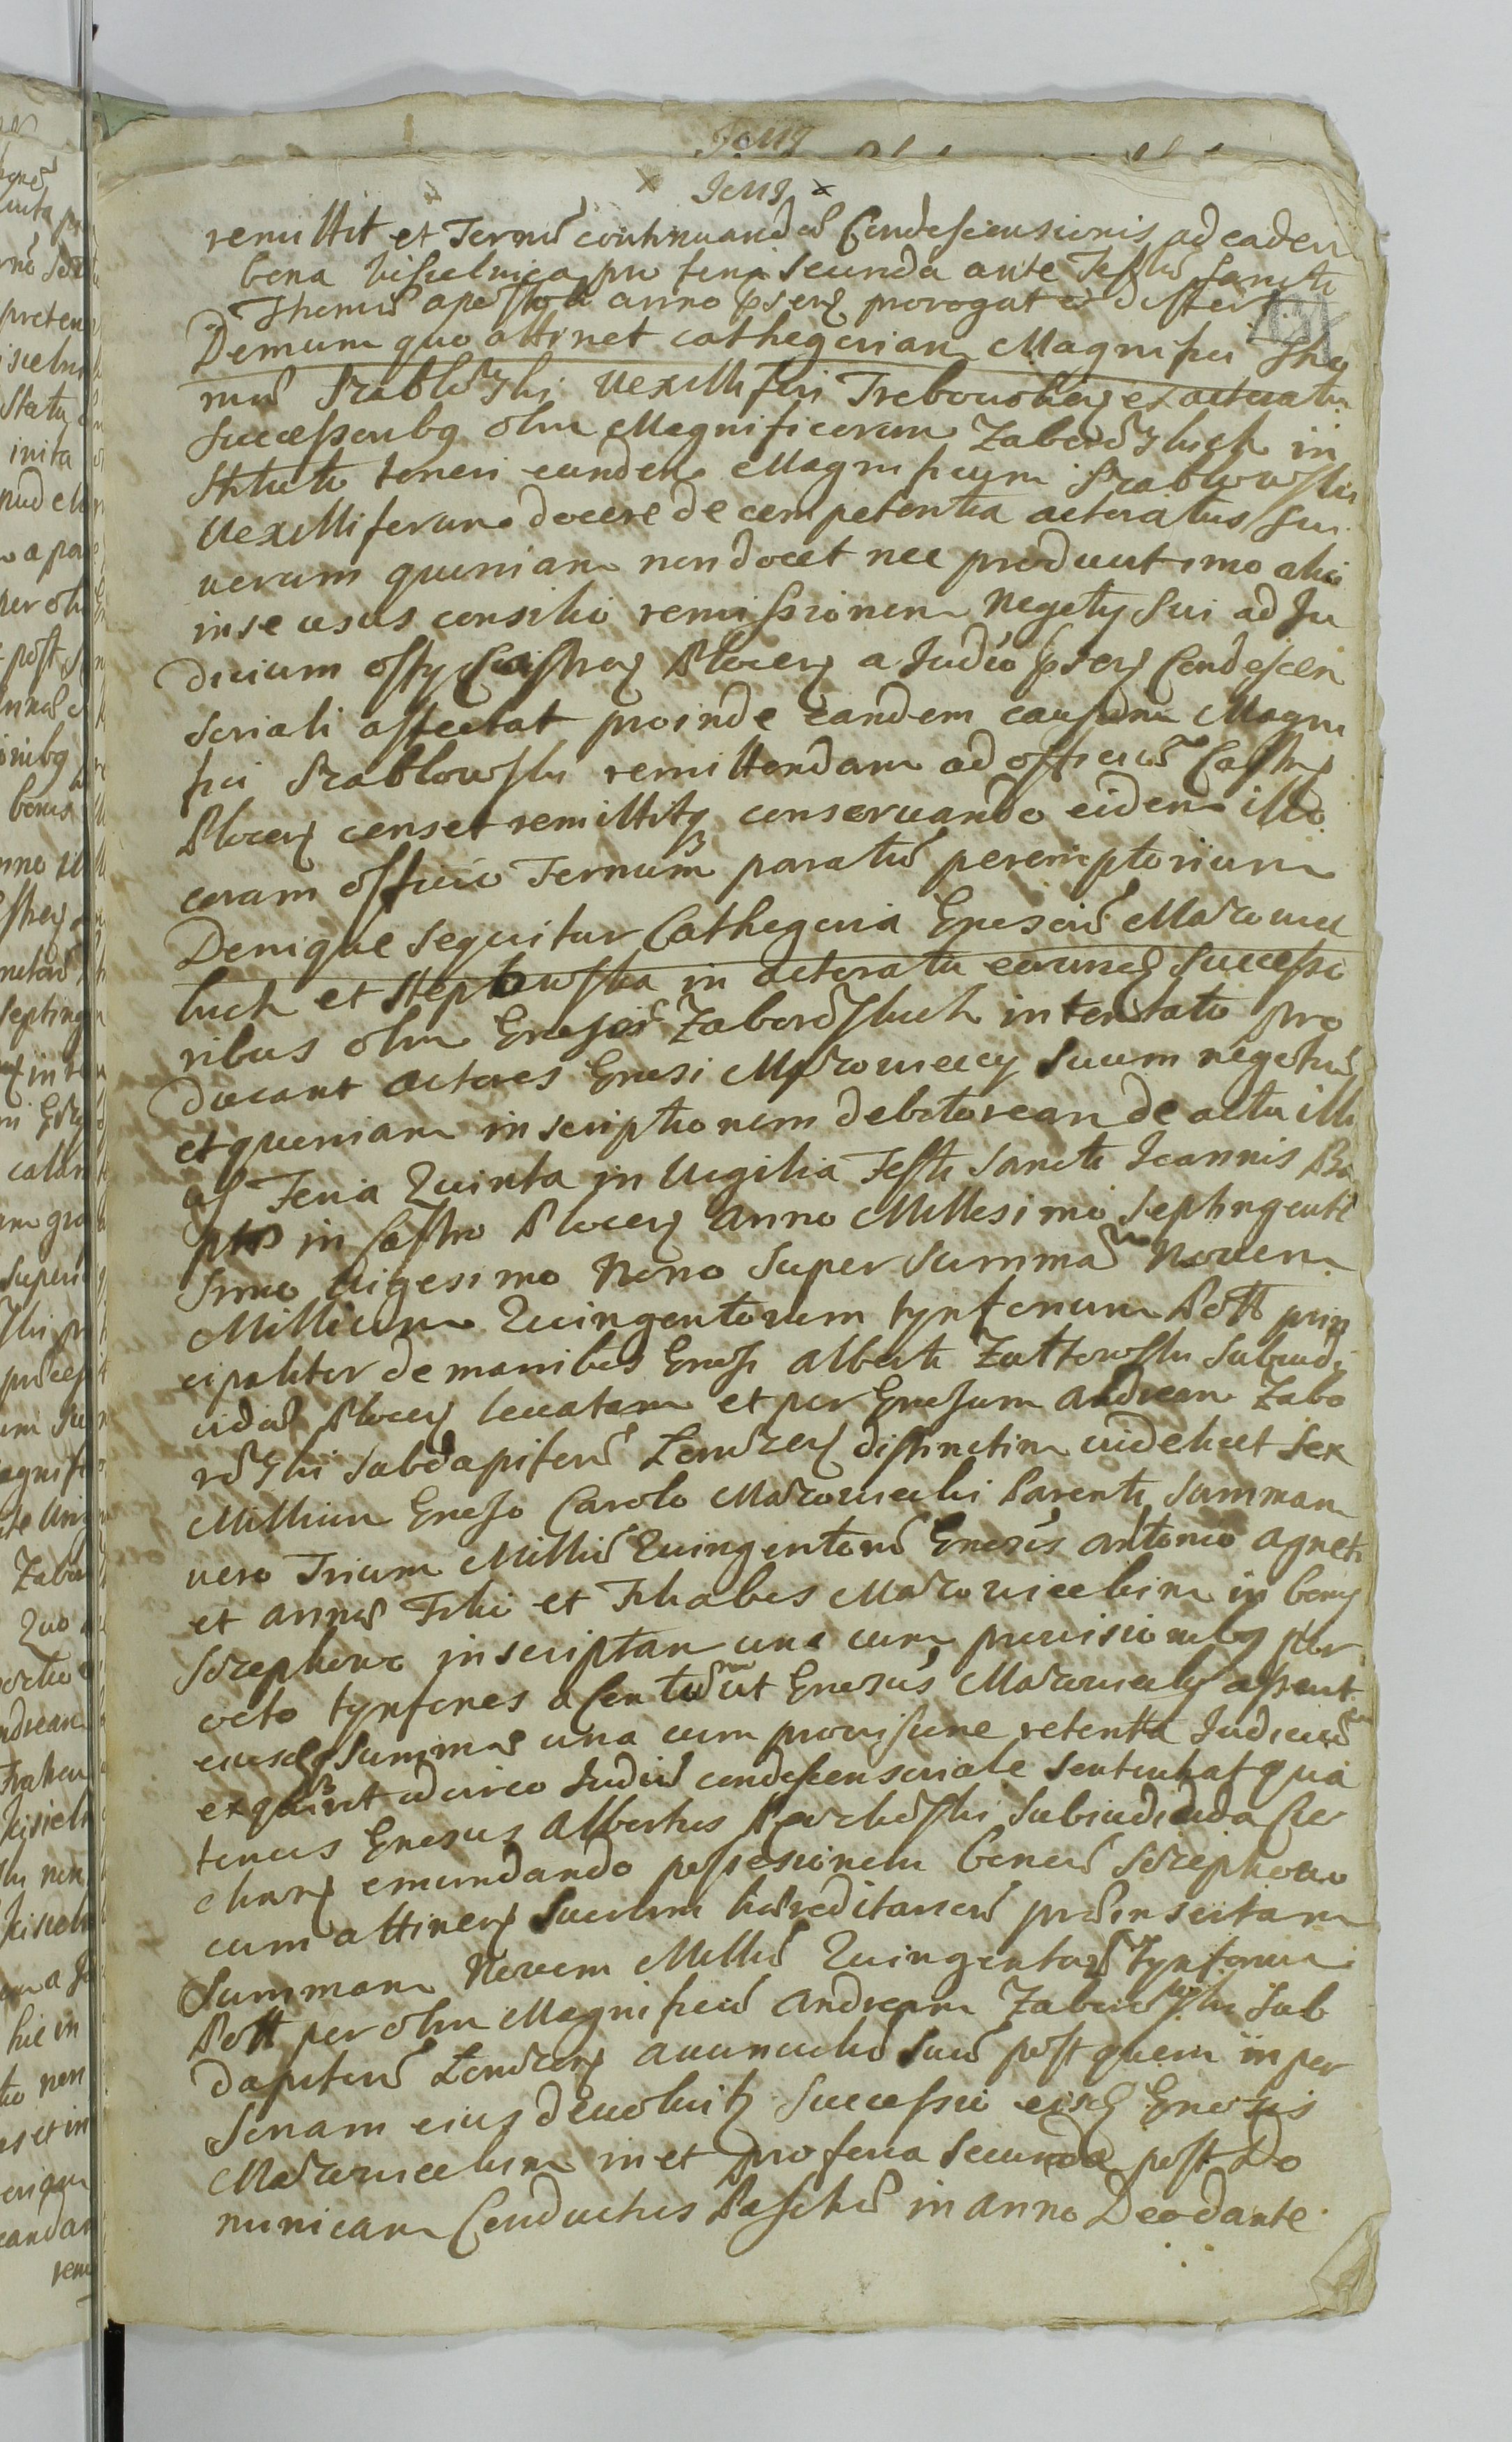 remittit et Termū continuandæ Condescensionis ad eadem
bona pro feria secunda ante Festū Sancti
Thomæ apostoli anno pser. prorogat et differt
Demum quo attinet cathegoriam Magnifici Tho
mæ Szablowski Vexilliferi Trebovolien. ex actoratu
Successoribq olim Magnificorum Zaborowskich in
stituti teneri eundem Magnificum Szablowski
Vexilliferum docere de competentia actoratus sui
verum quoniam non docet nec producit imo alio
in se usus consilio remissionem Negotij Sui ad Ju
dicium offij Castren. Plocen. a Judicio pser. Condescen
soriali affectat proinde eandem causam Magni
fici Szablowski remittendam ad officiū Castren.
Plocen. censet remittitq conservando eidem illo
coram officio Termum paratū peremptorium
Denique sequitur Cathegoria Gnosorū Mazowiec
kich et Steplowska in actoratu eorumq Successo
ribus olim Gnosor Zaborowskich intentato pro
ducant actores Gnosi Mazowieccy Suum negotiū
et quoniam inscriptionem debitoream de actu illi
us Feria Quinta in Vigilia Festi Sancti Joannis Ba
ptæ in Castro Plocen. Anno Millesimo Septingente
simo Vigesimo Nono Super Summā Novem
Millium Quingentorum tynfonum Poll prin
cipaliter de manibus Gnosi Alberti Zattowski Subiudi
cidæ Plocen. levatam et per Gnosum Andream Zabo
rowski Subdapiferū distinctim videlicet Sex
Millium Gnoso Carolo Mazowiecki Parenti Summam
vero Trium Milliū Quingentorū Gnosis Antonio Agneti
et Annæ Filio et Filiabus Mazowieckim in bonis
inscriptam una cum provisionibq per
octo tynfones a Centū ut Gnosus Mazowiecky asserit
eiusdq Summæ una cum provisione retenta Judiciū
exquirit idcirco Judiciū condescensoriale Sententiat qua
tenus Gnosus Albertus Subiudicida Cie
chan. emundando possesionem bonorū
cum attinen. Suorum hæreditariorū præinsertam
Summam Novem Milliū Quingentorū Tynfonum
Poll per olim Magnificū Andream Zaborowski Sub
dapiferū avunculū Suū post quem in per
sonam eius devolvitq Successio eisdq Gnosis
Mazowieckim in et pro feria Secunda post Do
minicam Conductus Paschæ in anno Deo dante